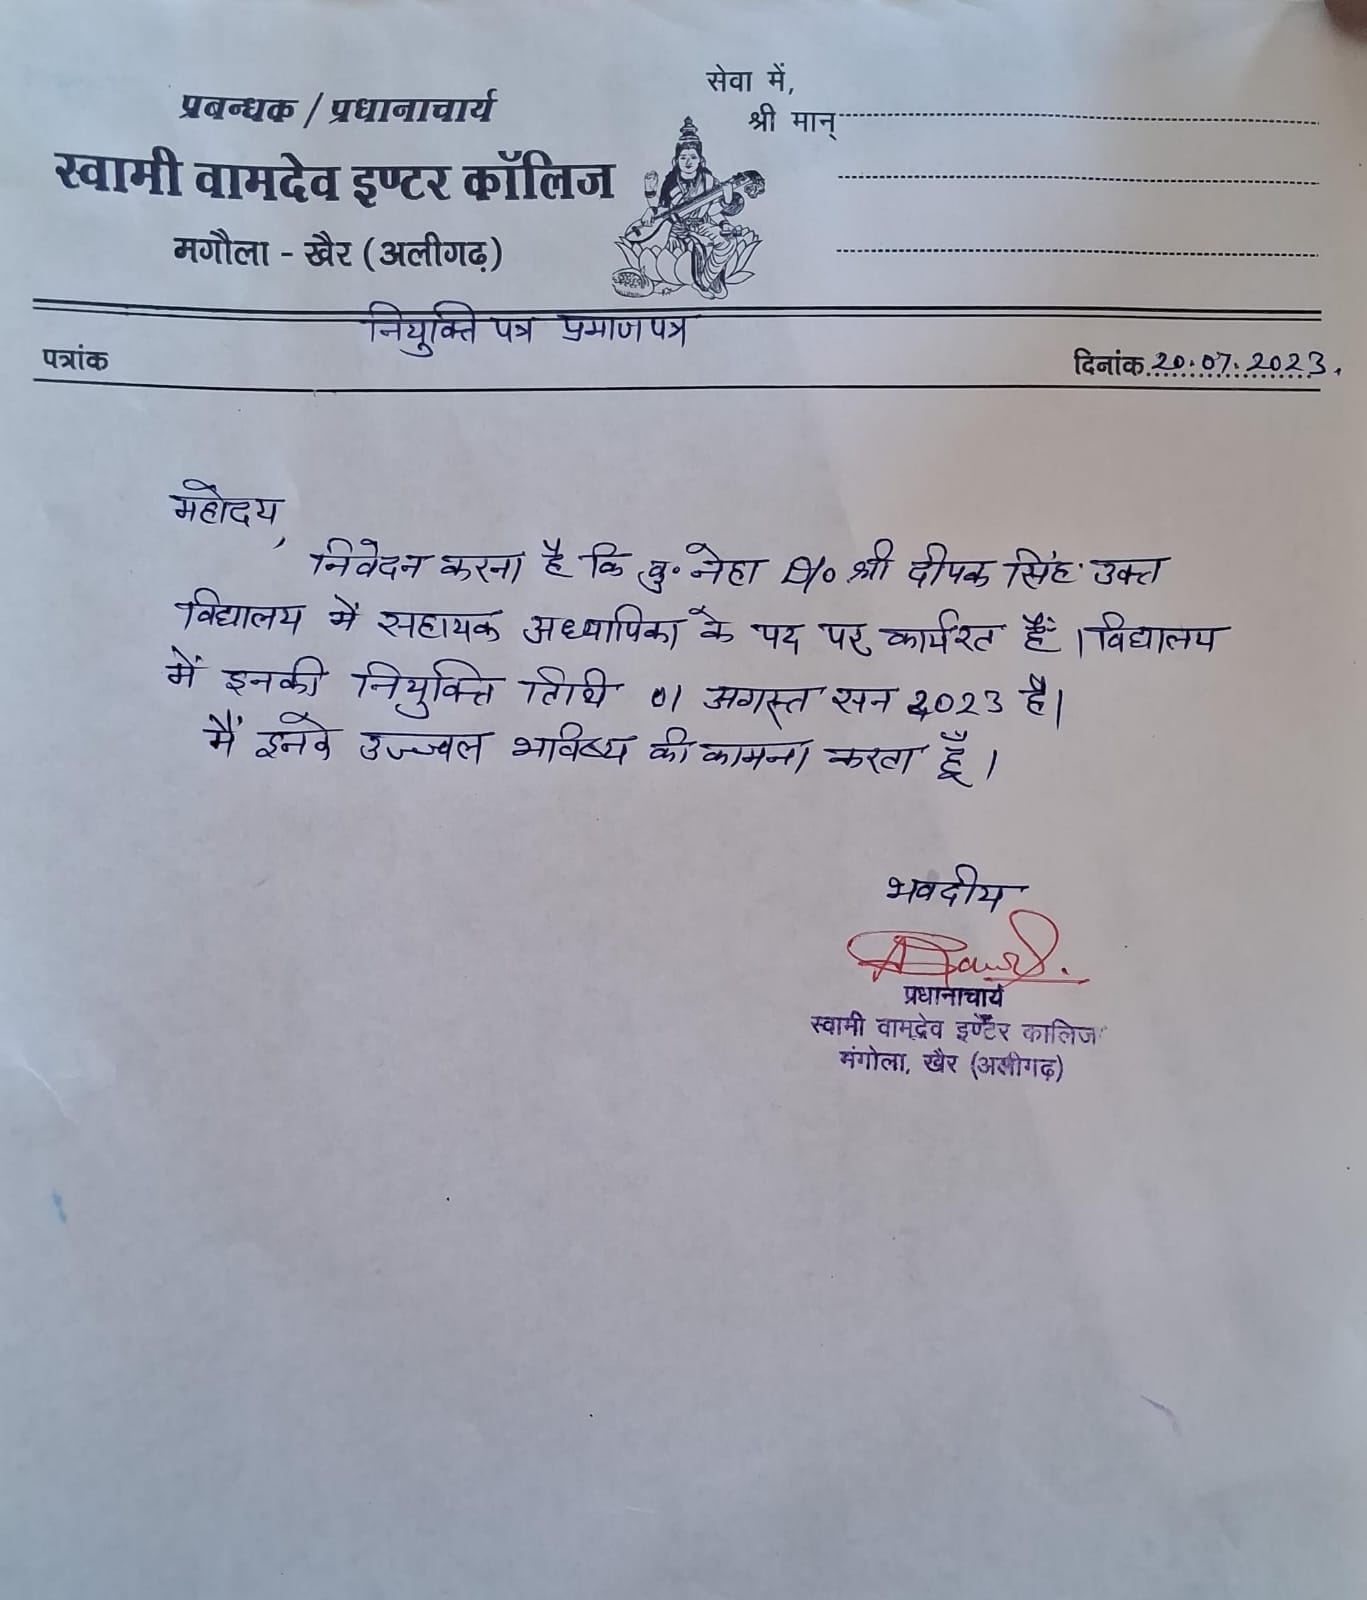 प्रबन्धक / प्रधानाचार्य
स्वामी वामदेव इण्टर कॉलिज
मगौला - खैर (अलीगढ़)
सेवा में,
श्री मान्
नियुक्ति पत्र प्रमाण पत्र
पत्रांक
दिनांक 20.07.2023.
महोदय,
निवेदन करना है कि कु. नेहा D/o श्री दीपक सिंह उक्त
विद्यालय में सहायक अध्यापिका के पद पर कार्यरत हैं। विद्यालय
में इनकी नियुक्ति तिथि 01 अगस्त सन 2023 है।
मैं इनके उज्ज्वल भविष्य की कामना करता हूँ।
भवदीय
प्रधानाचार्य
स्वामी वामदेव इण्टैर कालिज
मंगोला, खैर (अलीगढ़)